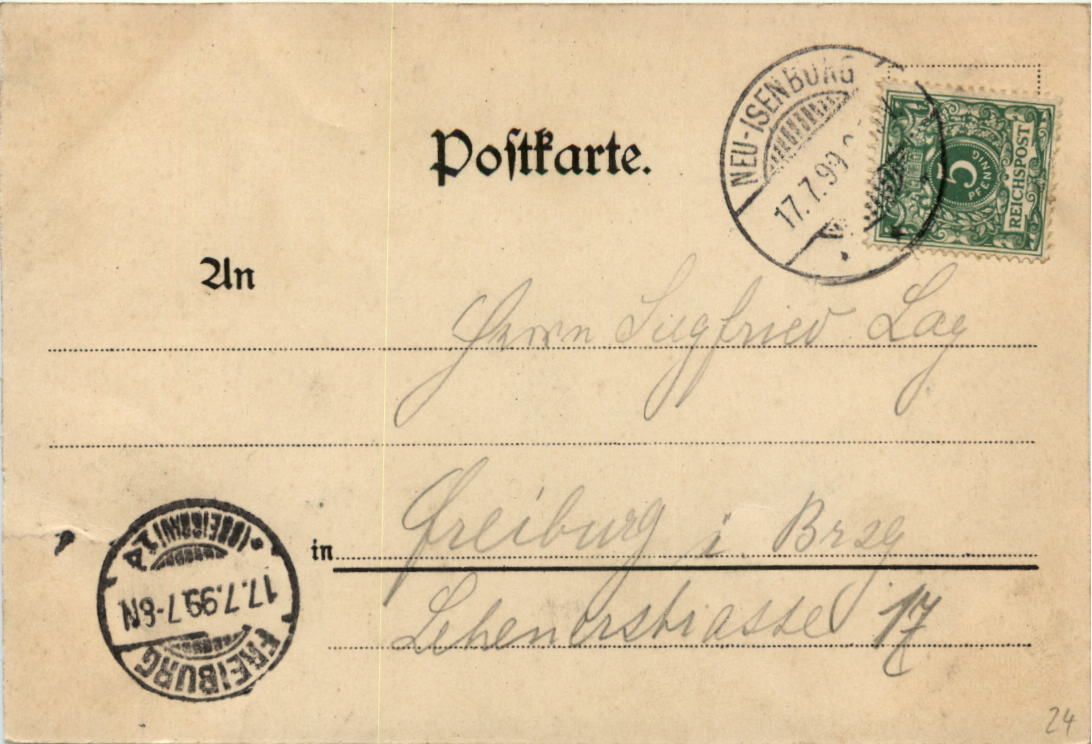 Postkarte.
NEU-ISENBURG
17.7.99
5
PFENNIG
REICHSPOST
An
Herrn Siegfried Lay
in Freiburg i. Brsg
Lehenerstrasse 17
FREIBURG
17.7.99.7-8N
*(BREISGAU)1A
24